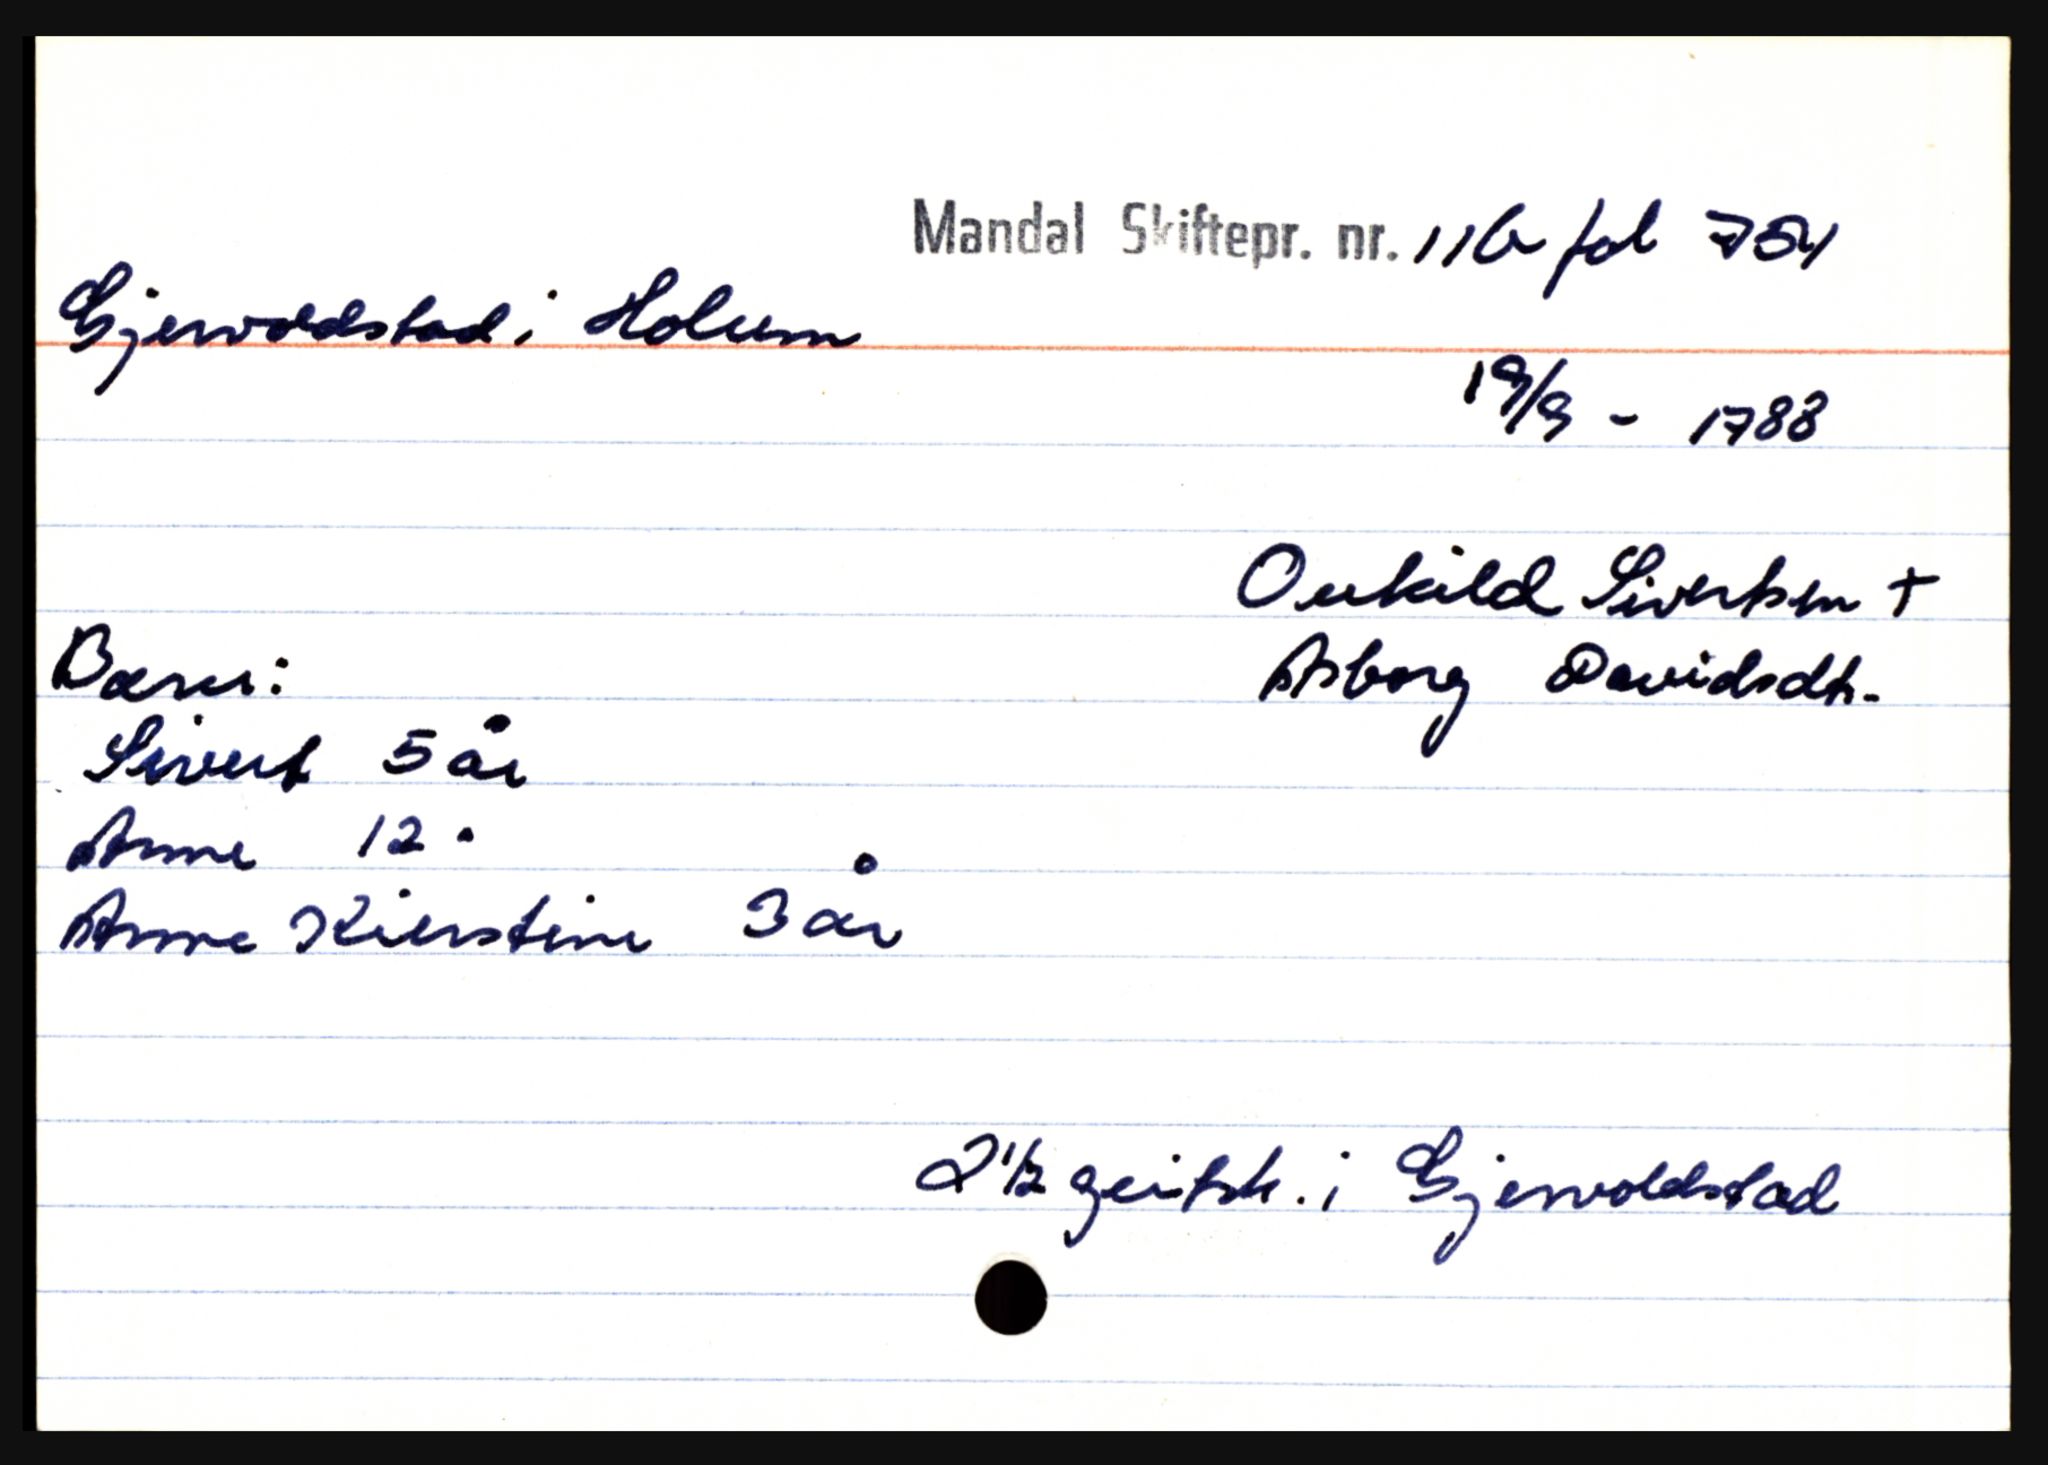 Mandal Skiftepr. nr. 11b fol 754
Gjervoldstad i Holum
19/9 - 1788
Oukild Sivertsen +
Asborg Davidsdtr.
Barn:
Sivert 5 år
Anne 12 "
Anne Kierstine 3 år
2 1/2 geitsk. i Gjervoldstad